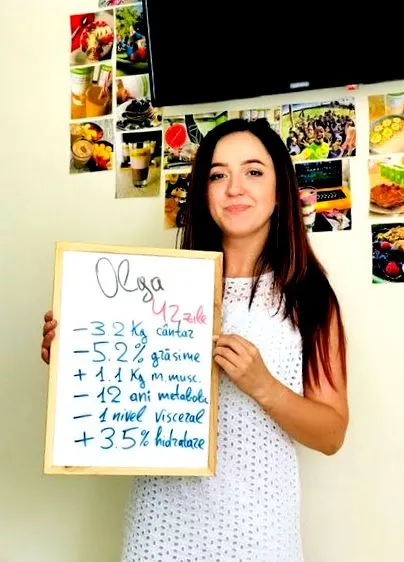 Olga
42 zile
- 3.2 Kg cântar
- 5.2% grăsime
+ 1.1 Kg m. musc.
- 12 ani metabolic
- 1 nivel visceral
+ 3.5% hidratare